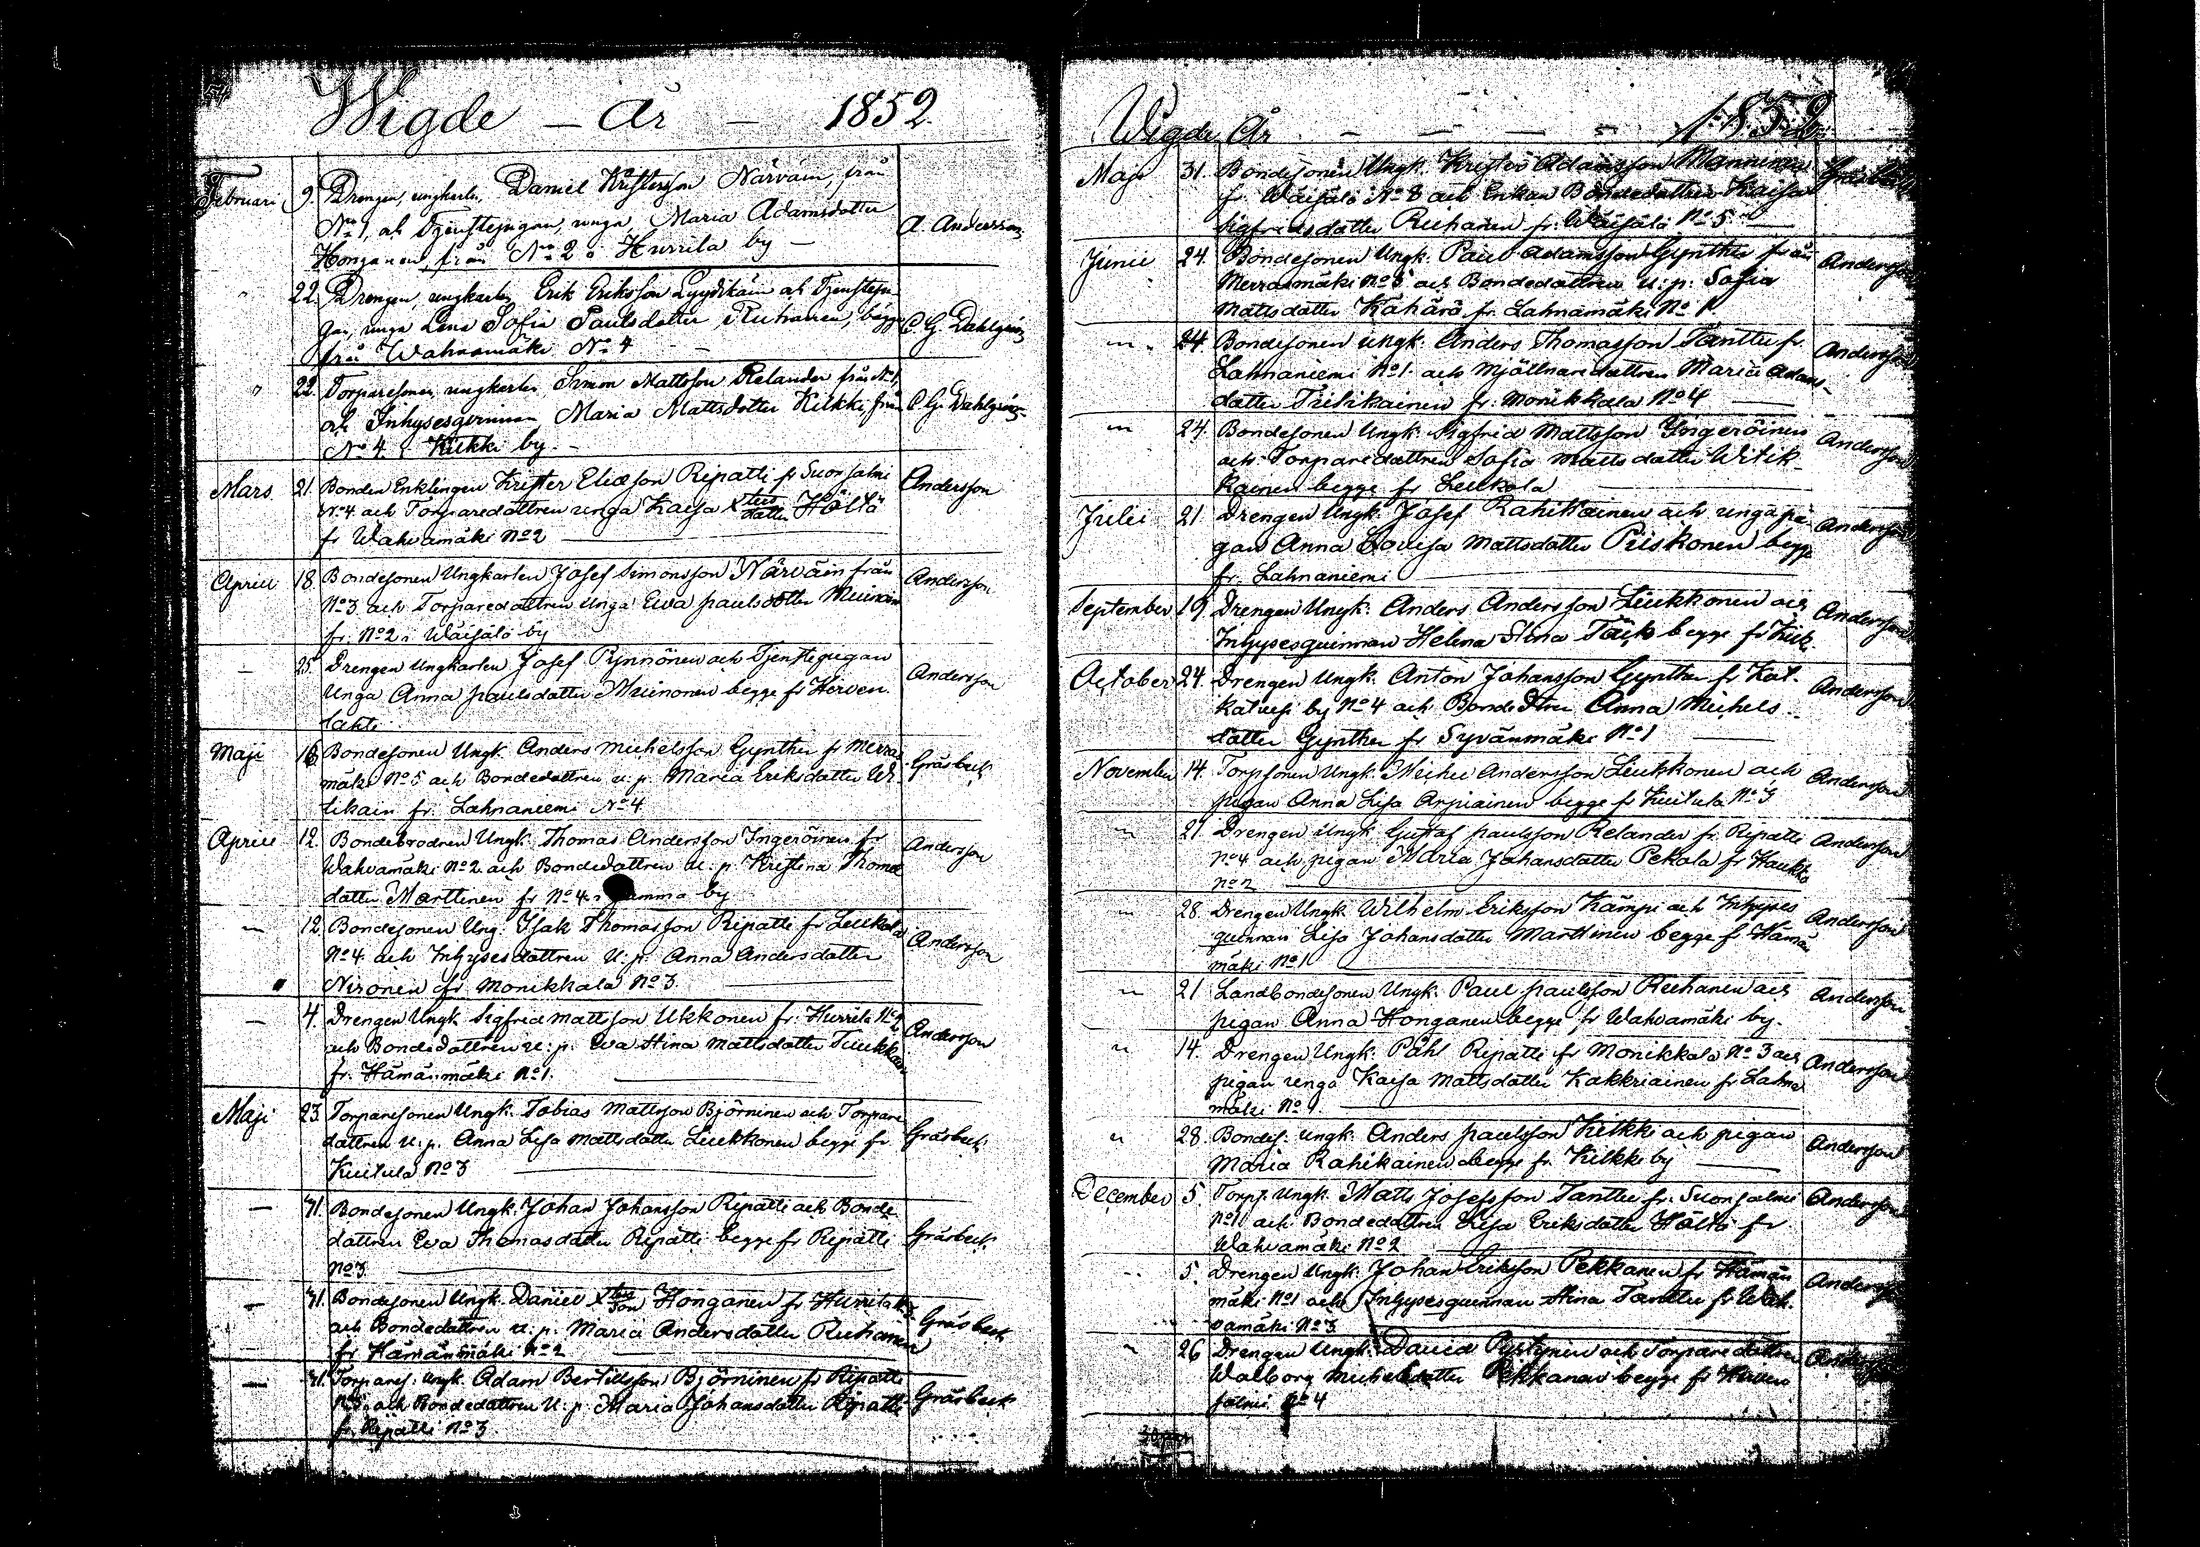 Wigde – År – 1852.
Februari 9. Drengen, ungkarlen, Daniel Kristersson Närväin, från
No 1, ock Tjenstepigan, unga Maria Adamsdotter A. Andersson
Honganen, från No 2 i Hurrila by –
" 22. Drengen, ungkarlen, Erik Eriksson Lyydikäin ock Tjenstepi-
gan, unga Lena Sofia Paulsdotter Ruhanen, bägge C. G. Dahlgrén
från Wahvamäki No 4
" 22. Torparesonen, ungkarlen, Simon Mattsson Relander från No 1,
ock Inhysesqvinnan Maria Mattsdotter Kilkki, från C. G. Dahlgrén
No 4 i Kilkki by. –
Mars 21. Bonden Enklingen Krister Eliæson Ripatti fr Suonsalmi Andersson
No 4 och Torparedottren unga Kaisa Xters dotter Höltä
fr Wahvamäki No 2
Aprill 18. Bondesonen Ungkarlen Josef Simonsson Närväin från Andersson
No 3 och Torparedottren unga Ewa paulsdotter Muinoin
fr. No 2 i Wäisälä by
– 25. Drengen Ungkarlen Josef Pynnönen och Tjenstepigan
Unga Anna paulsdotter Muinonen begge fr Hirven Andersson
lahti
Maji 16 Bondesonen Ungk. Anders Michelsson Gynther fr Merra
mäki No 5 och Bondedottren u. p. Maria Eriksdotter Wi- Gråsbeck
tikain fr. Lahnaniemi No 4
Aprill 12. Bondebrodren Ungk. Thomas Andersson Ingeröinen fr Andersson
Wahvamäki No 2 och Bondedottren u. p. Kristina Thomæ
dotter Marttinen fr No 4 i samma by
– 12. Bondesonen Ung. Isak Thomasson Ripatti fr Leukola Andersson
No 4 och Inhysesdottren u. p. Anna Andersdotter
Nironen fr Monikkala No 3
– 4. Drengen Ungk. Sigfrid mattsson Ukkonen fr. Hurrila No 2 Andersson
och Bondedottren u. p. Ewa Stina Mattsdotter Tuukkan
fr. Hämänmäki No 1.
Maji 23. Torparesonen Ungk. Tobias mattsson Björninen och Torpare
dottren u. p. Anna Lisa Mattsdotter Liukkonen begge fr Gråsbeck
Kuitula No 3
– 31. Bondesonen Ungk. Johan Johansson Ripatti och Bonde
dottren Ewa Thomasdotter Ripatti begge fr Ripatti Gråsbeck
No 3
– 31. Bondesonen Ungk. Daniel Xters son Honganen fr Hurrila
och Bondedottren u. p. Maria Andersdotter Ruhanen Gråsbeck
fr Hämänmäki No 2
– 31. Torpares. ungk. Adam Bertillsson Björninen fr Ripatti
No 3 och Bondedottren u. p. Maria Johansdotter Ripatti Gråsbeck
fr. Ripatti No 3
Wigde År – – – – 1852
Maji 31. Bondesonen Ungk. Krister Adamsson Manninen Gråsbeck
fr. Wäisälä No 8 och Enkan Bondedottren Kaisa
Sigfridsdotter Ruhanen fr. Wäisälä No 5
Junii 24. Bondesonen Ungk. Paul Adamsson Gynther från Andersson
Merramäki No 5 och Bondedottren u. p. Sofia
Mattsdotter Kähärä fr. Lahnamäki No 1
– 24. Bondesonen Ungk. Anders Thomasson Tanttu fr. Andersson
Lahnaniemi No 1. och Mjöllnaredottren Maria Adams-
dotter Tiilikainen fr. Monikkala No 4
– 24. Bondesonen Ungk. Sigfrid Mattsson Yngeröinen Andersson
och Torparedottren Sofia Mattsdotter Witik-
kainen begge fr. Leukola
Julii 21. Drengen Ungk. Josef Rahikainen och unga pi- Andersson
gan Anna Lovisa Mattsdotter Piiskonen begge
fr. Lahnaniemi
September 19. Drengen Ungk. Anders Andersson Liukkonen och Andersson
Inhysesquinnan Helena Stina begge fr
October 24. Drengen Ungk. Anton Johansson Gynther fr Kat-
katuisi by No 4 och Bondedttren Anna Michels Andersson
dotter Gynther fr Syvänmäki No 1
November 14. Torpsonen Ungk. Michel Andersson Liukkonen och Andersson
pigan Anna Lisa Arpiainen begge fr Kuitula No 3
– 21 Drengen Ungk Gustaf paulsson Relander fr. Ripatti Andersson
No 4 och pigan Maria Johansdotter Pekola fr Haukka
No 2
– 28. Drengen Ungk. Wilhelm Eriksson Kämpi och Inhyses Andersson
quinnan Lisa Johansdotter Marttinen begge fr Hämän
mäki No 1
– 21 Landbondesonen Ungk. Paul paulsson Ruhanen och Andersson
pigan Anna Honganen begge fr Wahvamäki by.
– 14. Drengen Ungk. Påhl Ripatti fr Monikkala No 3 och Andersson
pigan unga Kaisa Mattsdotter Kakkriainen fr Lahna
mäki No 1.
– 28. Bondes. ungk. Anders paulsson Kilkki och pigan Andersson
Maria Rahikainen begge fr. Kilkki by
December 5. Torps. Ungk. Matts Josefsson Tanttu fr. Suonsalmi Andersson
No 11 och Bondedottren Lisa Eriksdotter Höltä fr
Wahvamäki No 2
– 5. Drengen Ungk. Johan Eriksson Pekkanen fr Hämän Andersson
mäki No 1 och Inhysesquinnan Stina Tanttu fr Wah-
vamäki No 3
– 26 Drengen Ungk. David och Torparedottren
Walborg Michelsdotter Pekkanen begge fr
salmi No 4